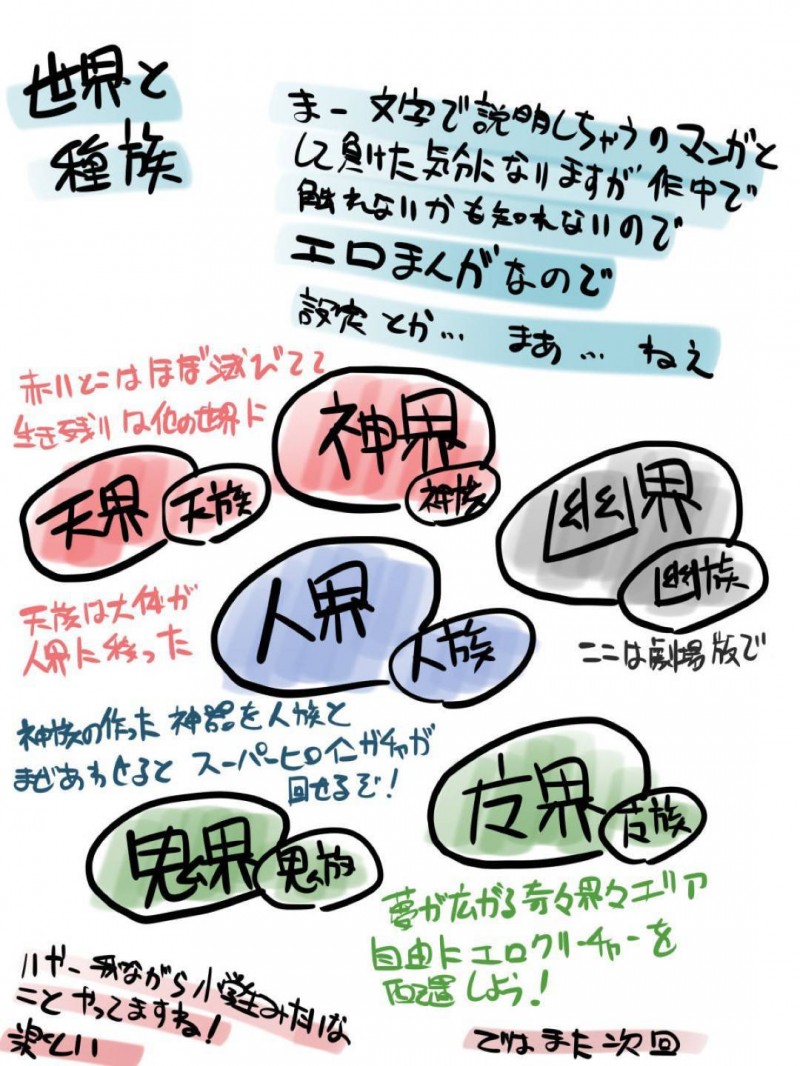 世界と
種族
まー 文字で説明しちゃうのマンガと
して負けた気分になりますが 作中で
触れないかも知れないので
エロまんがなので
設定とか… まあ… ねえ
赤いとこはほぼ滅びてて
生き残りは他の世界に
神界
神族
天界
天族
幽界
幽族
人界
人族
天族は大体が
人界に移った
ここは劇場版で
神族の作った 神器を人族と
まぜあわせると スーパーヒロインガチャが
回せるで!
鬼界
鬼族
夢が広がる奇々界々エリア
自由にエロクリーチャーを
配置しよう!
いやー 我ながら小学生みたいな
ことやってますね!
楽しい
ではまた次回